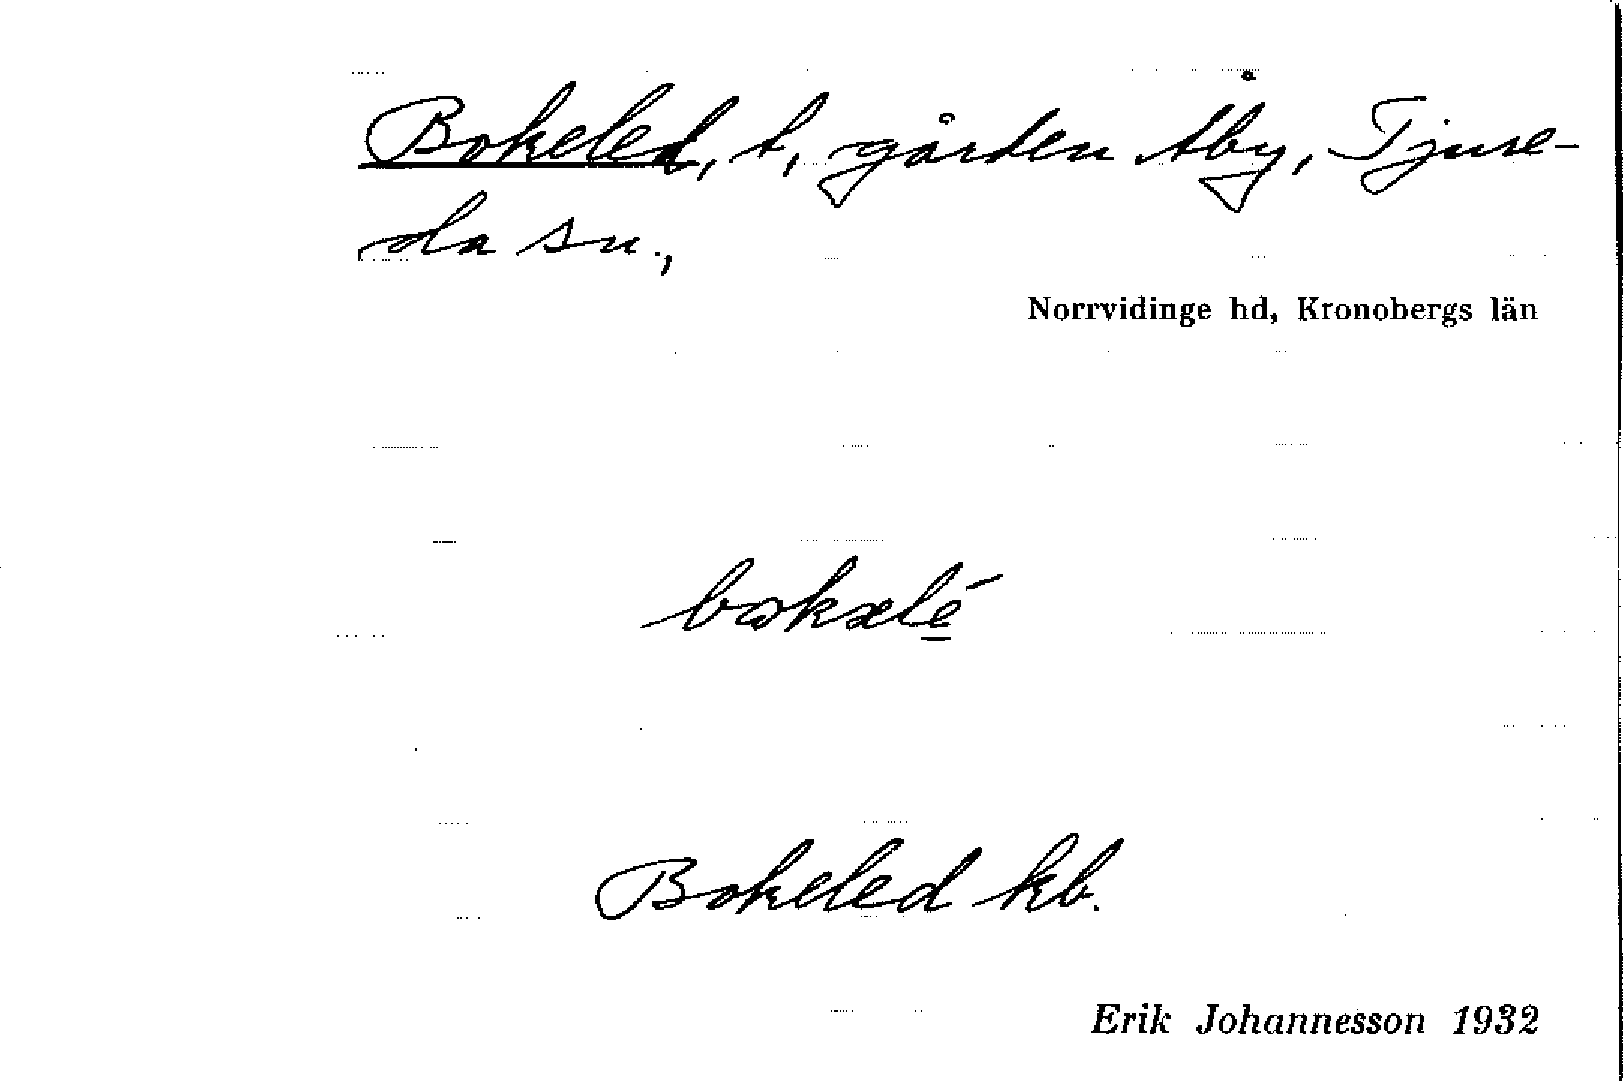 Bokeled, t, gården Åby, Tjure-
da sn.,
Norrvidinge hd, Kronobergs län
Bokeled kb.
Erik Johannesson 1932